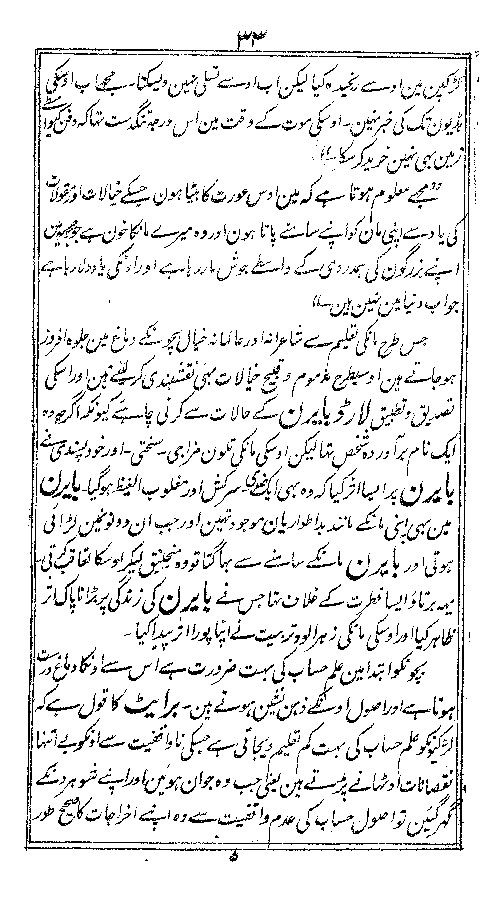 ۳۳
لڑکپن مین اوسے رنجیدہ کیا لیکن اب اوسے تسلی نہین دیسکتا۔ مجھے اب اوسکی
ہڈیون تک کی خبر نہین۔ اوسکی موت کے وقت مین اس درجہ تنگدست تہا کہ دفن کیواسطے
زمین بہی نہین خرید کر سکا۔"
"مجھے معلوم ہوتا ہے کہ مین اوس عورت کا بیٹا ہون جسکے خیالات اور مقولات
کی یاد سے اپنی مان کو اپنے سامنے پاتا ہون اور وہ میرے مانکا خون ہے جو مجھمین
اپنے بزرگون کی ہمدردی کے واسطے جوش مار رہا ہے اور اونکی یاد دلا رہا ہے
جو اب دنیا مین نہین ہین۔"
جس طرح مانکی تعلیم سے شاعرانہ اور عالمانہ خیال بچونکے دماغ مین جلوہ افروز
ہو جاتے ہین اوسیطرح مذموم و قبیح خیالات بہی نقشبندی کرلیتے ہین اور اسکی
تصدیق و تطبیق لارڈ بایرن کے حالات سے کرنی چاہے کیونکہ اگرچہ وہ
ایک نام برآوردہ شخص تہا لیکن اوسکی مانکی تلون مزاجی۔ سختی۔ اور خود پسندی نے
بایرن پر ایسا اثر کیا کہ وہ بہی ایک ضدی سرکش اور مغلوب الغیظ ہوگیا۔ بایرن
مین بہی اپنی مانکے مانند بداطواریان موجود تہین اور جب ان دونونمین لڑائی
ہوتی اور بایرن مانکے سامنے سے بہاگتا تو وہ منجنیق لیکر اوسکا تعاقب کرتی۔
یہہ برتاؤ ایسا فطرت کے خلاف تہا جس نے بایرن کی زندگی پر بڑا ناپاک اثر
ظاہر کیا اور اوسکی مانکی زہرآلود تربیت نے اپنا پورا اثر پیدا کیا۔
بچونکو ابتدا مین علم حساب کی بہت ضرورت ہے اس سے اونکا دماغ درست
ہوتا ہے اور اصول اونکے ذہن نشین ہوتے ہین۔ برایٹ کا قول ہے کہ
لڑکیونکو علم حساب کی بہت کم تعلیم دیجاتی ہے جسکی ناواقفیت سے اونکو بے انتہا
نقصانات اوٹہانے پڑتے ہین یعنی جب وہ جوان ہوئین اور اپنے شوہر دنکے
گہر گئین تو اصول حساب کی عدم واقفیت سے وہ اپنے اخراجات کا صحیح طور
۵